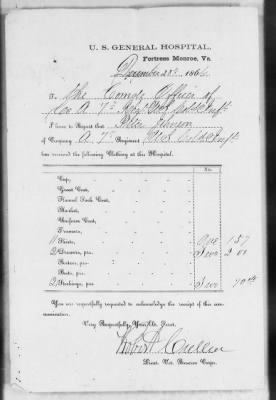 U. S. GENERAL HOSPITAL,
Fortress Monroe, Va.
December 28th 1864
To The Comdg Officer of
Co A 7th Regt
I have to Report that Peter Johnson
of Company A 7th Regiment
has received the following Clothing at this Hospital.
No.
Cap,
Great Coat,
Flannel Sack Coat,
Blanket,
Uniform Coat,
Trowsers,
Shirts, One 1 57
2 Drawers, prs. Two 2 00
Bootees, prs.
Boots, prs.
2 Stockings, prs. Two 70
You are respectfully requested to acknowledge the receipt of this com-
munication.
Very Respectfully, Your Ob. Servt.
Robert Cullen
Lieut. Vet. Reserve Corps.